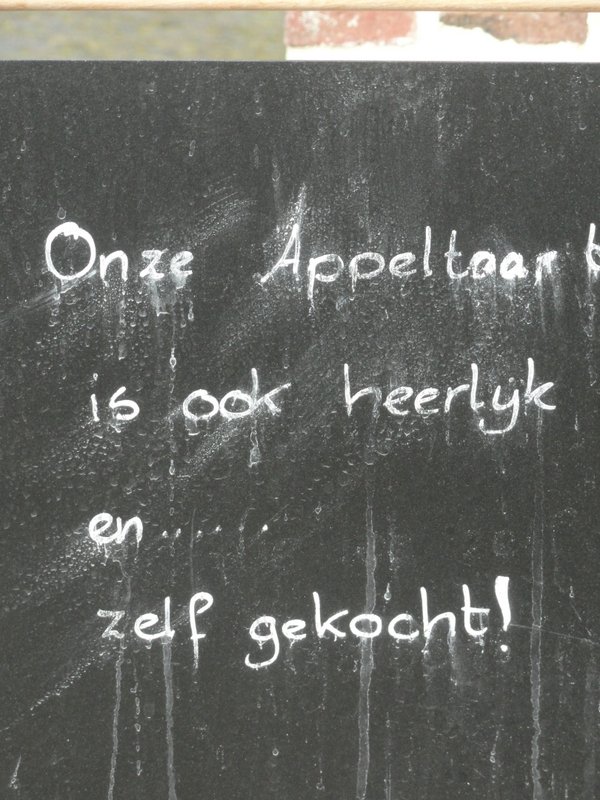 Onze Appeltaart
is ook heerlijk
en.....
zelf gekocht!